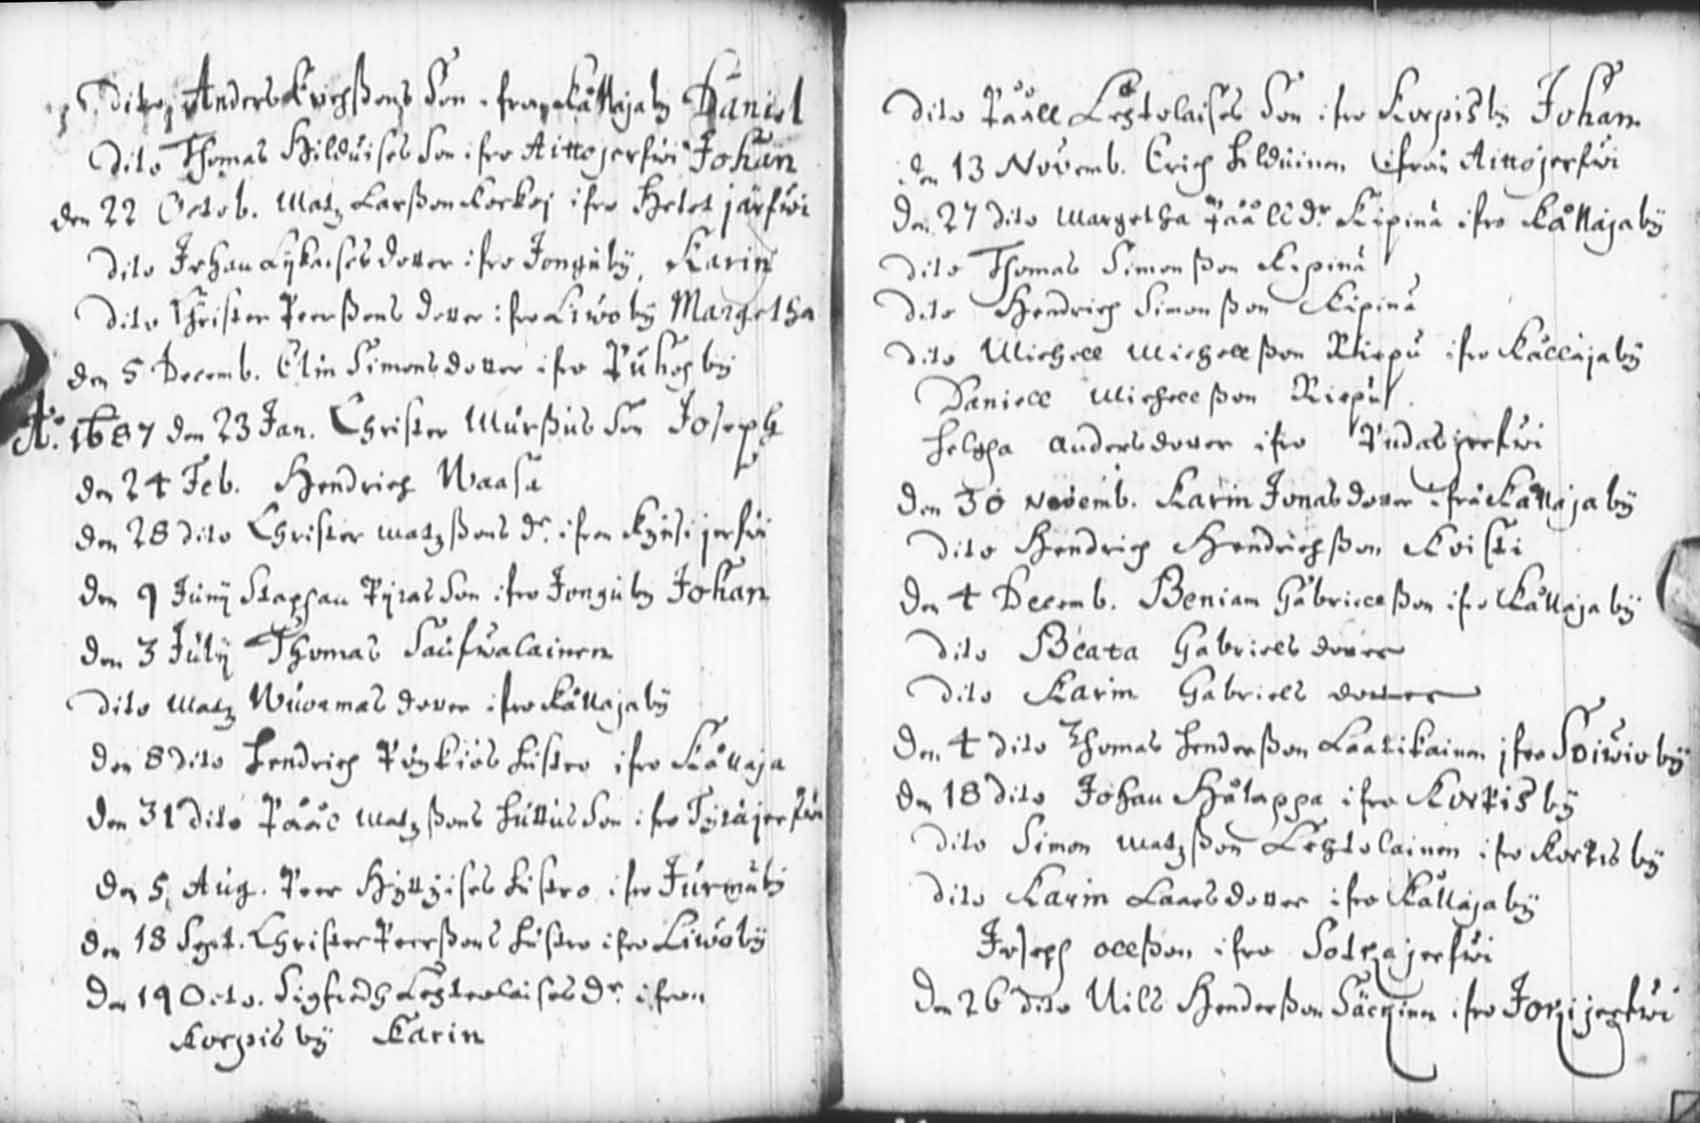 Dito Anders Erichßons Son ifrån Kållajaby Daniel
Dito Thomas Hilduises Son ifrå Aittojerfwi Johan
den 22 Octob. Matz Larßon Korkoj ifrå Hetetjärfwi
Dito Johan Lykaises dotter ifrå Jonguby Karin
Dito Christer Peerßons dotter ifrå Liwoby Margetha
den 5 Decemb. Elin Simonsdotter ifrå Puhosby
A:o 1687 den 23 Jan. Christer Murßus Son Joseph
den 24 Feb. Hendrich Waasa
den 28 dito Christer Matzßons dr. ifrån jerfwi
den 9 Junij Staphan Pyras Son ifrå Jonguby Johan
den 3 Julij Thomas Saufwalainen
Dito Matz Wuormas dotter ifrå Kållajaby
den 8 dito Hendrich hustro ifrå Kållaja
den 31 dito Påål Matzßons Huttus Son ifrå Tyräjerfwi
den 5 Aug. Peer Hyttyises hustro ifrå Jurmuby
den 18 Sept. Christer Peerßons hustro ifrå Liwoby
den 19 Octo. Sigfredh Lehtolaises dr. ifrån
Korpisby Karin
Dito Pååll Lehtolaises Son ifrå Korpisby Johan
den 13 Novemb. Erich Hilduinen ifrån Aittojerfwi
den 27 dito Margetha Påålsdr. Kipinä ifrå Kållajaby
dito Thomas Simonßon Kipinä
dito Hendrich Simonßon Kipinä
dito Michell Michellßon Riepu ifrå Kållajaby
Daniell Michellßon Riepu
Helgha Andersdotter ifrå Pudasjerfwi
den 30 Novemb. Karin Jonasdotter ifrå Kållajaby
dito Hendrich Hendrichßon Koisti
den 4 Decemb. Beniam Gabriellßon ifrå Kållajaby
dito Beata Gabriels dotter
dito Karin Gabriels dotter
den 4 dito Thomas Henderßon Laatikainen ifrå Soiwioby
den 18 dito Johan Hålappa ifrå Korpisby
dito Simon Matzßon Lehtolainen ifrå Korpisby
dito Karin Laarsdotter ifrå Kållajaby
Joseph Olleßon ifrå Sotkajerfwi
den 26 dito Nills Henderßon ifrå Jorzijerfwi